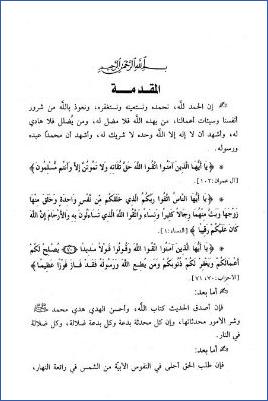 بسم الله الرحمن الرحيم
المقدمة
إن الحمد لله، نحمده ونستعينه ونستغفره، ونعوذ بالله من شرور
أنفسنا وسيئات أعمالنا، من يهده الله فلا مضل له، ومن يُضلل فلا هادي
له، وأشهد أن لا إله إلا الله وحده لا شريك له، وأشهد أن محمدًا عبده
ورسوله.
﴿يَا أَيُّهَا الَّذِينَ آمَنُوا اتَّقُوا اللَّهَ حَقَّ تُقَاتِهِ وَلا تَمُوتُنَّ إِلاَّ وَأَنْتُم مُّسْلِمُونَ﴾
[آل عمران: ١٠٢].
﴿يَا أَيُّهَا النَّاسُ اتَّقُوا رَبَّكُمُ الَّذِي خَلَقَكُم مِّن نَّفْسٍ وَاحِدَةٍ وَخَلَقَ مِنْهَا
زَوْجَهَا وَبَثَّ مِنْهُمَا رِجَالاً كَثِيرًا وَنِسَاءً وَاتَّقُوا اللَّهَ الَّذِي تَسَاءَلُونَ بِهِ وَالأَرْحَامَ إِنَّ اللَّهَ
كَانَ عَلَيْكُمْ رَقِيبًا﴾ [النساء: ١].
﴿يَا أَيُّهَا الَّذِينَ آمَنُوا اتَّقُوا اللَّهَ وَقُولُوا قَوْلاً سَدِيدًا (٧٠) يُصْلِحْ لَكُمْ
أَعْمَالَكُمْ وَيَغْفِرْ لَكُمْ ذُنُوبَكُمْ وَمَن يُطِعِ اللَّهَ وَرَسُولَهُ فَقَدْ فَازَ فَوْزًا عَظِيمًا﴾
[الأحزاب: ٧٠، ٧١].
أما بعد:
فإن أصدق الحديث كتاب الله، وأحسن الهدي هدي محمد ﷺ
وشر الأمور محدثاتها، وإن كل محدثة بدعة وكل بدعة ضلالة، وكل ضلالة
في النار.
أما بعد:
فإن طلب الحق أحلى في النفوس الأبيّة من الشمس في رائعة النهار،